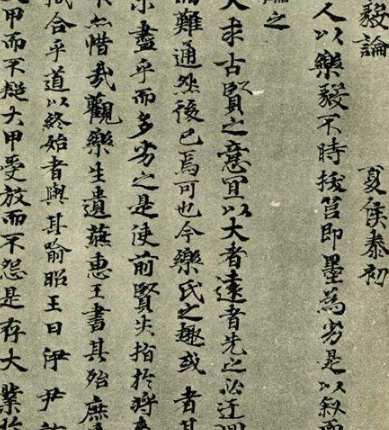 毅論 夏侯泰初
人以樂毅不時拔莒即墨為劣是以叙而
論之
夫求古賢之意宜以大者遠者先之必迂
而難通然後已焉可也今樂氏之趣或者其
未盡乎而多劣之是使前賢失指於將
不亦惜哉觀樂生遺燕惠王書其殆庶
機合乎道以終始者與其喻昭王曰伊尹放
大甲而不疑大甲受放而不怨是存大業於